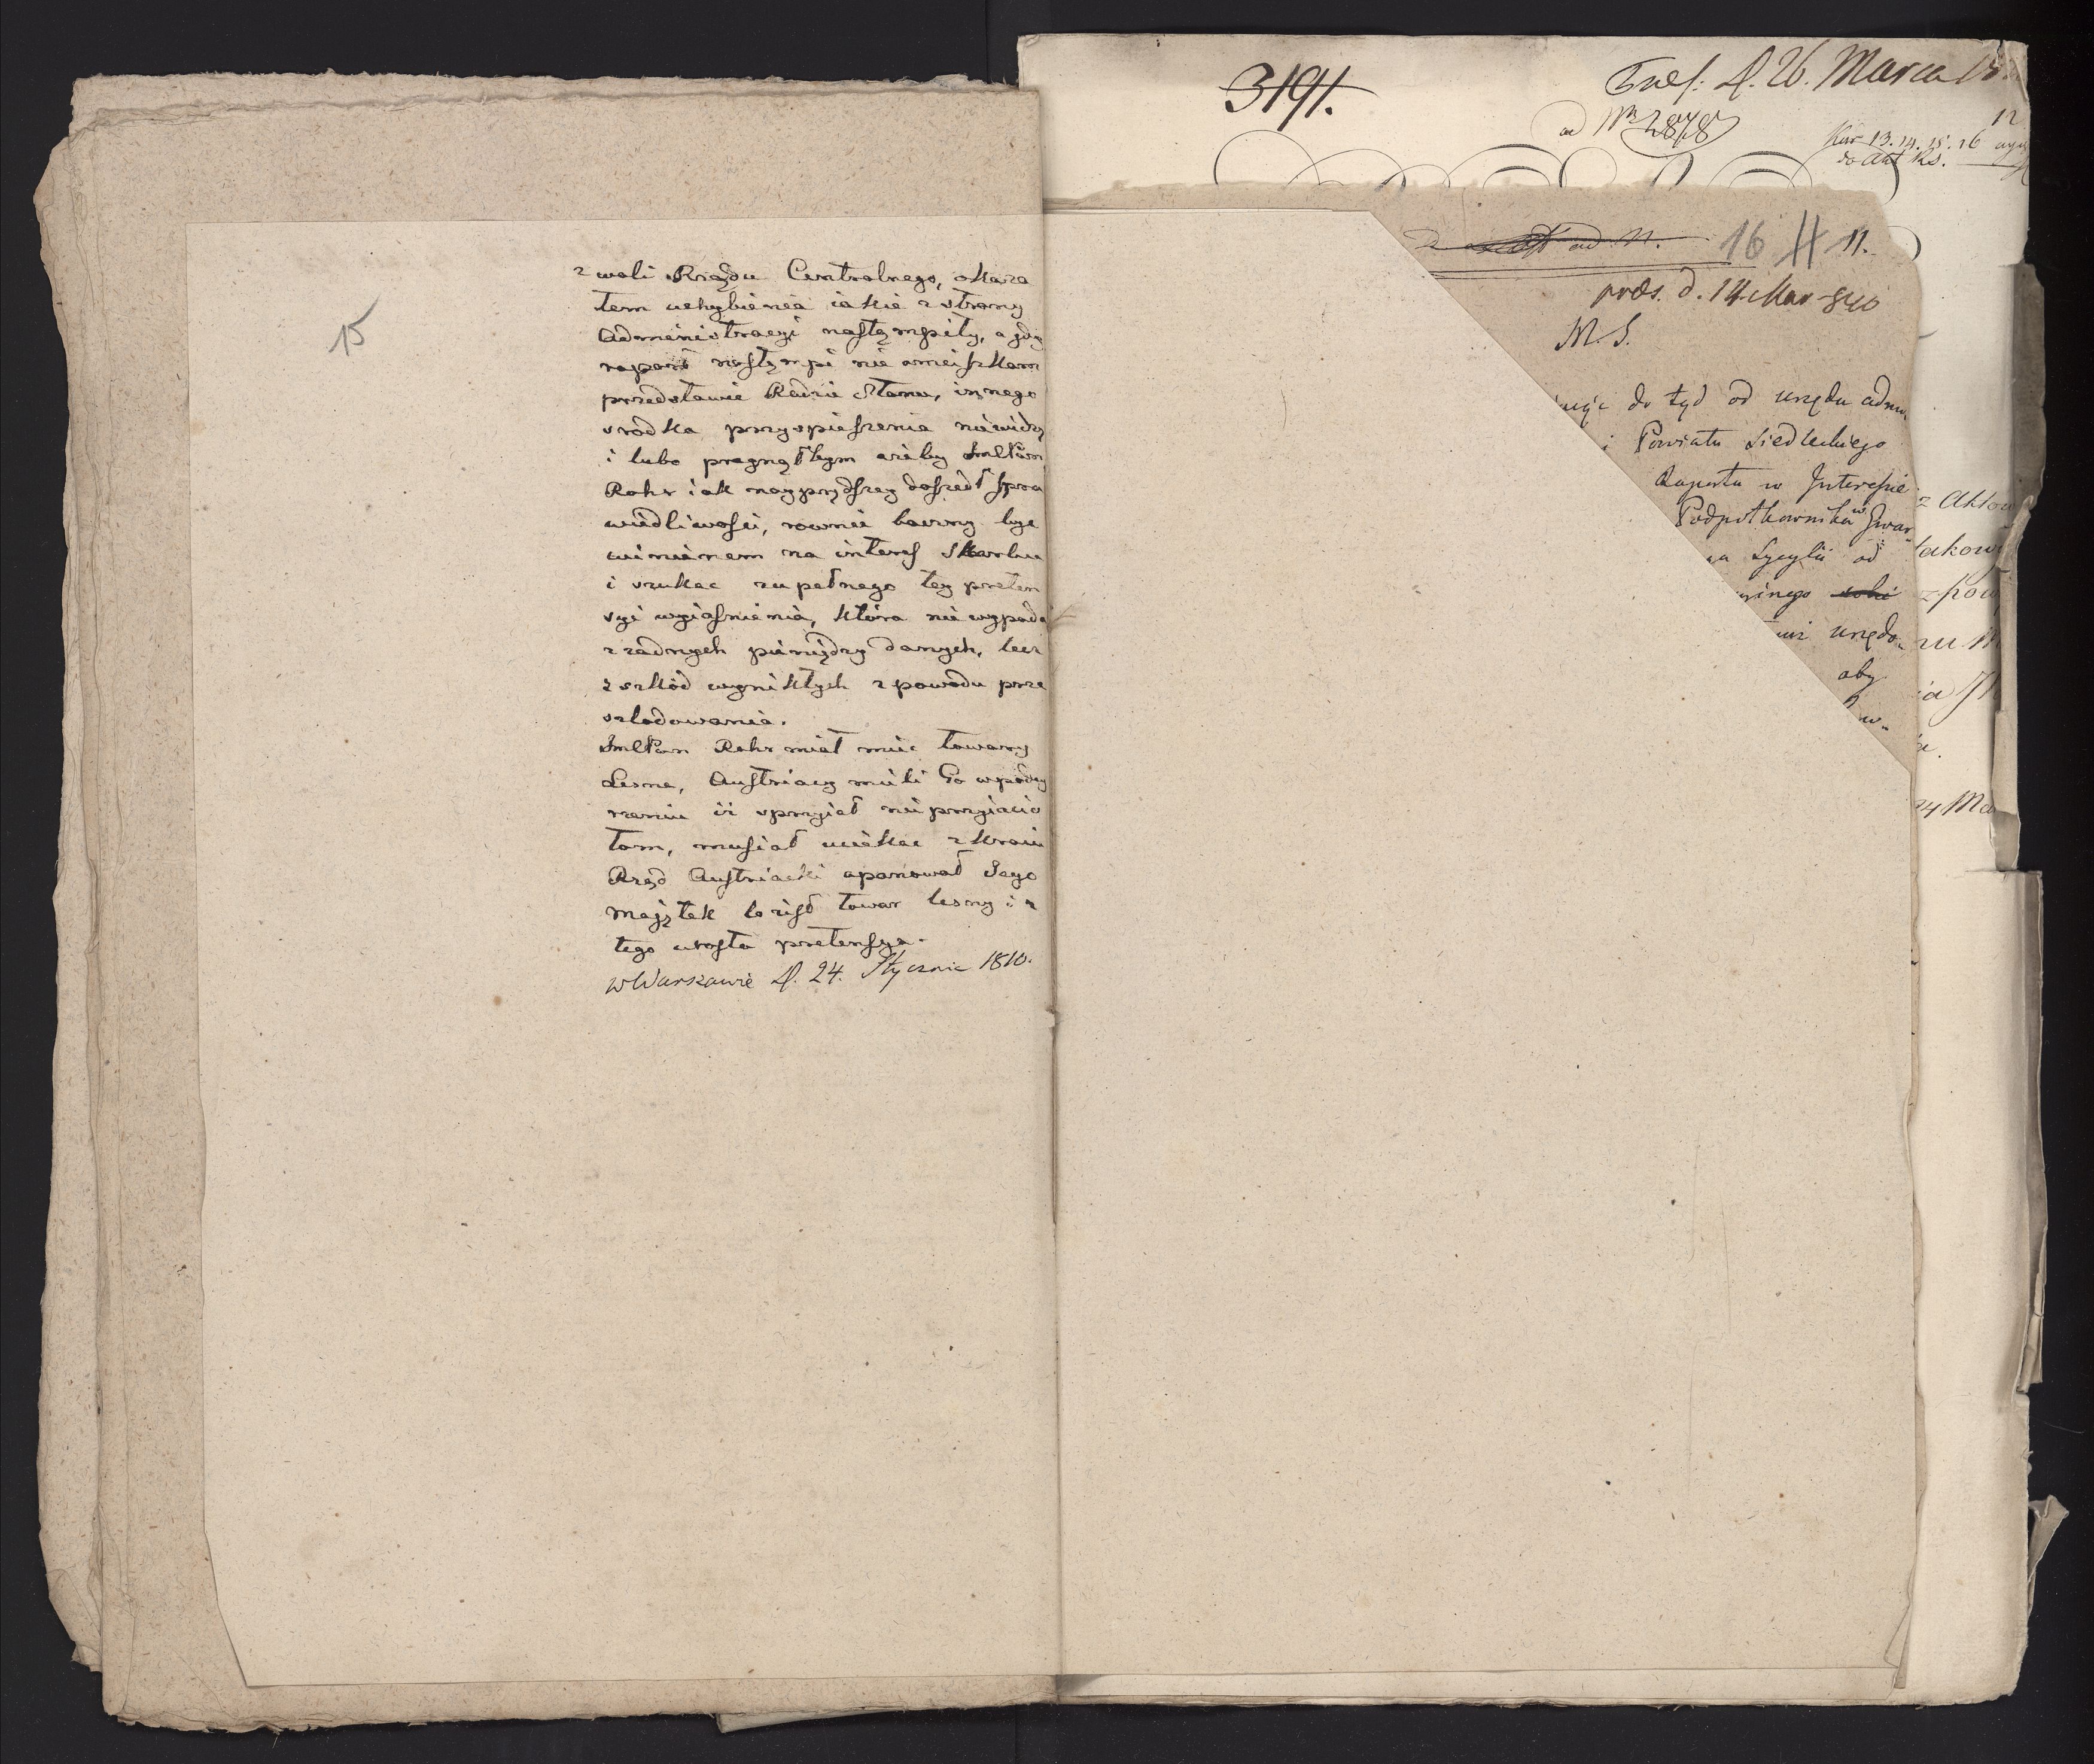 15
z woli Rządu Centralnego, okaza
łem uchybienia iakie z strony
Administracyi nastąmpiły, a gdy
raport nastąmpi nie omieszkam
przedstawić Radzie Stanu, innego
srodka przyspieszenia niewidzę
i lubo pragnąłbym ażeby JmlPan
Rohr iak nayprędszey doszedł spra
wiedliwosci, rownie baczny być
winienem na interes Skarbu
i szukac zupełnego tey preten
syi wyiasnienia, która nie wypada
z żadnych pieniędzy danych, lecz
z szkód wynikłych z powodu prze
szladowania.
JmlPan Rohr miał miec towary
Lesne, Austriacy mieli Go w podey
rzeniu iż sprzyiał nieprzyiacio
łom, musiał uciekac z kraiu
Rząd Austriacki opanował Jego
Maiątek to iest towar lesny i z
tego urosła pretensya.
w Warszawie d. 24. Stycznia 1810.
3191.
Praes: d. 26. Marca
ad Nr 2878
12
Kar 13. 14. 15. 16
do Akt Ks.
ad N. 16 11.
praes. d. 14 Mar 810
M. S.
do tyd od urzędu admi
i Powiatu Siedleckiego
Raportu w Interesie
Podpułkownika w Gwar
Sycylii od
urzędo
aby
w
z Aktow
takowy
z pow
zu M
24 Ma